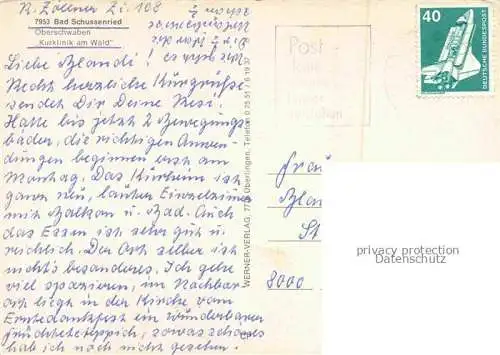 R. Zöllner Zi. 108
7953 Bad Schussenried
Oberschwaben
"Kurklinik am Wald"
Liebe Blandi!
Recht herzliche Kurgrüße
sendet Dir Deine Resi.
Hatte bis jetzt 2 Bewegungs-
bäder, die richtigen Anwen-
dungen beginnen erst am
Montag. Das Kurheim ist
ganz neu, lauter Einzelzimmer
mit Balkon u. Bad. Auch
das Essen ist sehr gut u.
reichlich. Der Ort selber ist
nichts besonderes. Ich gehe
viel spazieren, im Nachbar-
ort liegt in der Kirche vom
Erntedankfest ein wunderbarer
Früchteteppich, sowas schönes
hab ich noch nicht gesehen.
WERNER-VERLAG, Überlingen, Telefon 0 75 51 / 6 19 37
Post
40
DEUTSCHE BUNDESPOST
Frau
8000
privacy protection
Datenschutz